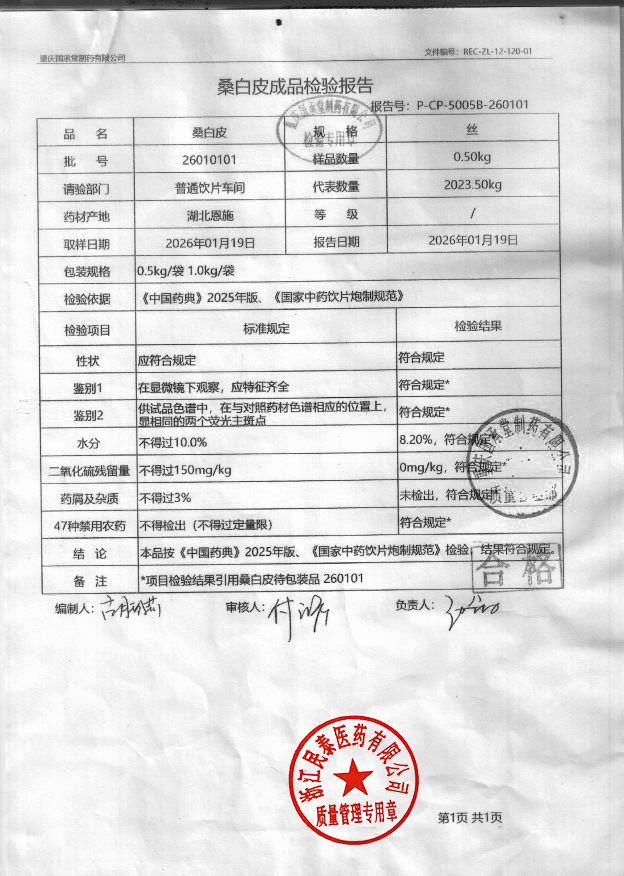 重庆国承堂制药有限公司 文件编号：REC-ZL-12-120-01
桑白皮成品检验报告
报告号：P-CP-5005B-260101
品 名 桑白皮 规 格 丝
批 号 26010101 样品数量 0.50kg
请验部门 普通饮片车间 代表数量 2023.50kg
药材产地 湖北恩施 等 级 /
取样日期 2026年01月19日 报告日期 2026年01月19日
包装规格 0.5kg/袋 1.0kg/袋
检验依据 《中国药典》2025年版、《国家中药饮片炮制规范》
检验项目 标准规定 检验结果
性状 应符合规定 符合规定
鉴别1 在显微镜下观察，应特征齐全 符合规定*
鉴别2 供试品色谱中，在与对照药材色谱相应的位置上，
显相同的两个荧光主斑点 符合规定*
水分 不得过10.0% 8.20%，符合规定*
二氧化硫残留量 不得过150mg/kg 0mg/kg，符合规定*
药屑及杂质 不得过3% 未检出，符合规定*
47种禁用农药 不得检出（不得过定量限） 符合规定*
结 论 本品按《中国药典》2025年版、《国家中药饮片炮制规范》检验，结果符合规定。
备 注 *项目检验结果引用桑白皮待包装品 260101
合格
编制人： 审核人： 负责人：
重庆国承堂制药有限公司
检验专用章
重庆国承堂制药有限公司
质量管理部
浙江民泰医药有限公司
质量管理专用章
第1页 共1页